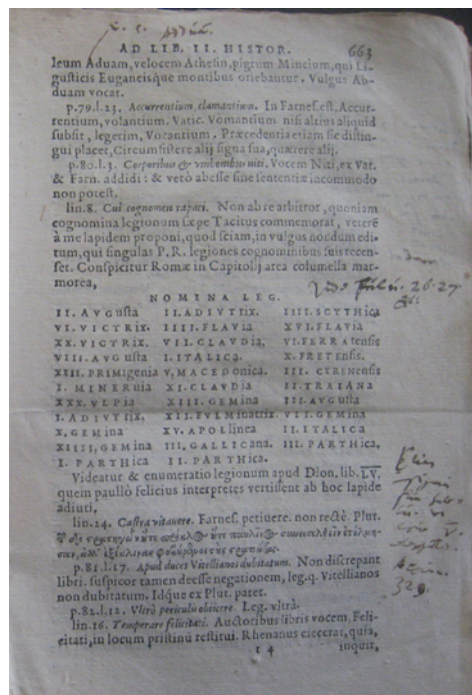 AD LIB. II. HISTOR. 663
leum Aduam, velocem Athesin, pigrum Mincium, qui Li-
gusticis Euganeisque montibus oriebantur. Vulgus Ab-
duam vocat.
p.79.l.23. Accurrentium, clamantium. In Farnes. est, Accur-
rentium, volantium. Vatic. Vomantium. nisi altius aliquid
subsit, legerim, Vocantium. Præcedentia etiam sic distin-
gui placet, Circumsistere alij signa sua, quærere alij.
p.80.l.3. Corporibus & vmbonibus niti. Vocem Niti, ex Vat.
& Farn. addidi: & verò abesse sine sententiæ incommodo
non potest.
lin.8. Cui cognomen rapaci. Non abs re arbitror, quoniam
cognomina legionum sæpe Tacitus commemorat, veterē
à me lapidem proponi, quod sciam, in vulgus nondum edi-
tum, qui singulas P.R. legiones cognominibus suis recen-
set. Conspicitur Romæ in Capitolij area columella mar-
morea,
NOMINA LEG.
II. AVGusta II. ADIVTRIX. IIII. SCYTHICA
VI. VICTRIX. IIII. FLAVIA XVI. FLAVIA
XX. VICTRIX. VII. CLAVDIA, VI. FERRATensis
VIII. AVGusta I. ITALICA. X. FRETENsis.
XIII. PRIMIGenia V, MACEDonica. III. CYRENENsis
I. MINERuia XI. CLAVDIA II. TRAIANA
XXX. VLPIA XIII. GEMINA III. AVGusta
I. ADIVTRIX, XII. FVLMINatrix. VII. GEMINA
X, GEMINA XV. APOLLinea II. ITALICA
XIIII, GEMINA III. GALLICANA. III. PARTHICA,
I. PARTHICA II. PARTHICA.
Videatur & enumeratio legionum apud Dion. lib. LV,
quem paullò felicius interpretes vertissent ab hoc lapide
adiuti,
lin.14. Castra vitauere. Farnes. petiuere. non rectè. Plut.
p.81.l.17. Apud duces Vitellianos dubitatum. Non discrepant
libri. suspicor tamen deesse negationem, leg. q. Vitellianos
non dubitatum. Idque ex Plut. paret.
p.82.l.12. Vltrò periculis obiicere. Leg. vltrà.
lin.16. Temperare felicitati. Auctoribus libris vocem, Feli-
citati, in locum pristinū restitui. Rhenanus eiecerat, quia,
inquit,